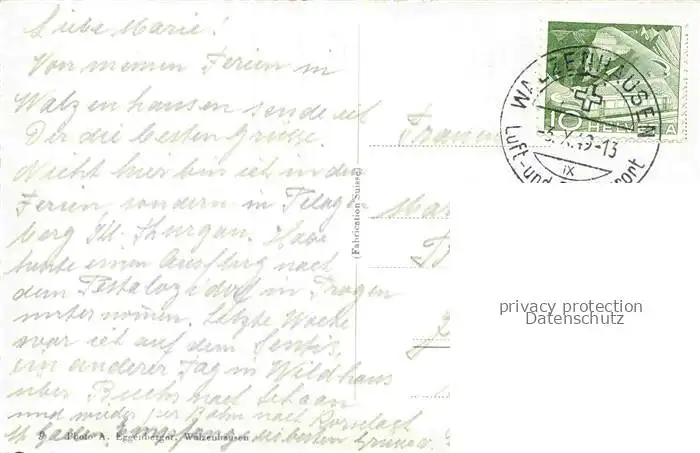 Liebe Marie!
Von meinen Ferien in
Walzenhausen sende ich
Dir die besten Grüsse.
Nicht hier bin ich in den
Ferien, sondern in
berg Kt. Thurgau. Habe
heute einen Ausflug nach
dem Pestalozidorf in Trogen
unternommen. Letzte Woche
war ich auf dem Sentis,
ein anderer Tag in Wildhaus
über Buchs nach
und wieder per Bahn nach
Empfange die besten Grüsse
Photo A. Eggenberger, Walzenhausen
(Fabrication Suisse)
WALZENHAUSEN
-3.X.49-13
IX
Luft-und
10 HELVETIA
privacy protection
Datenschutz